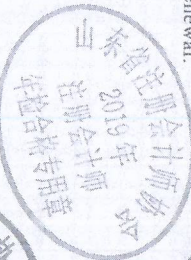 newal.
山东省注册会计师协会
2019 年
注册会计师
年检合格专用章